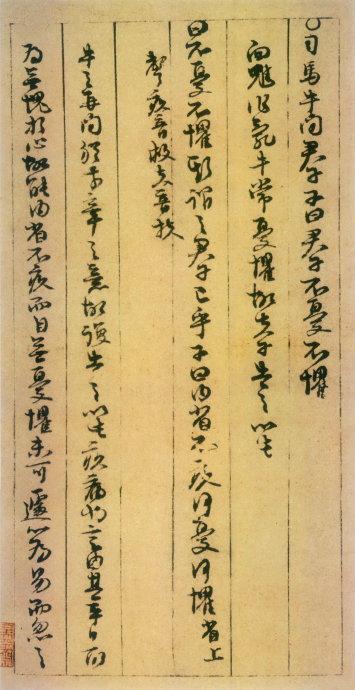 ○司馬牛問君子子曰君子不憂不懼
向魋作亂牛常憂懼故夫子告之以此
曰不憂不懼斯謂之君子已乎子曰內省不疚何憂何懼省上
聲疚音救夫音扶
牛之再問猶前章之意故復告之以此疚病也言由其平日所
為無愧於心故能內省不疚而自無憂懼未可遽以為易而忽之